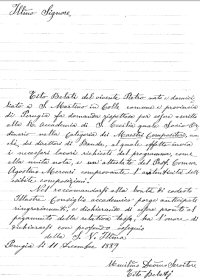 Illmo Signore,
Esto Belati del vivente Pietro nato e domici
liato a S. Martino in Colle comune e provincia
di Perugia fa domanda rispettosa per essere
alla R. Accademia di S. Cecilia quale Socio Or
dinario nella Categoria dei Maestri Compositori, on
chè dei direttori di Banda, al quale effetto invia
i necessari lavori richiesti dal programma, come
alla unita nota, e un attestato del Prof. Comm.
Agostino Mercuri comprovante l'autenticità delle
unite composizioni.
Nel raccomandarsi alla bontà di codesto
Illustre Consiglio accademico porge anticipati
ringraziamenti, e dichiarandosi pronto al
pagamento della relativa tassa, ha l'onore di
sottoscriversi con profondo ossequio
della S. V. Illma.
Perugia li 11 Dicembre 1889
Umilmo Devmo Servitore
Esto Belati